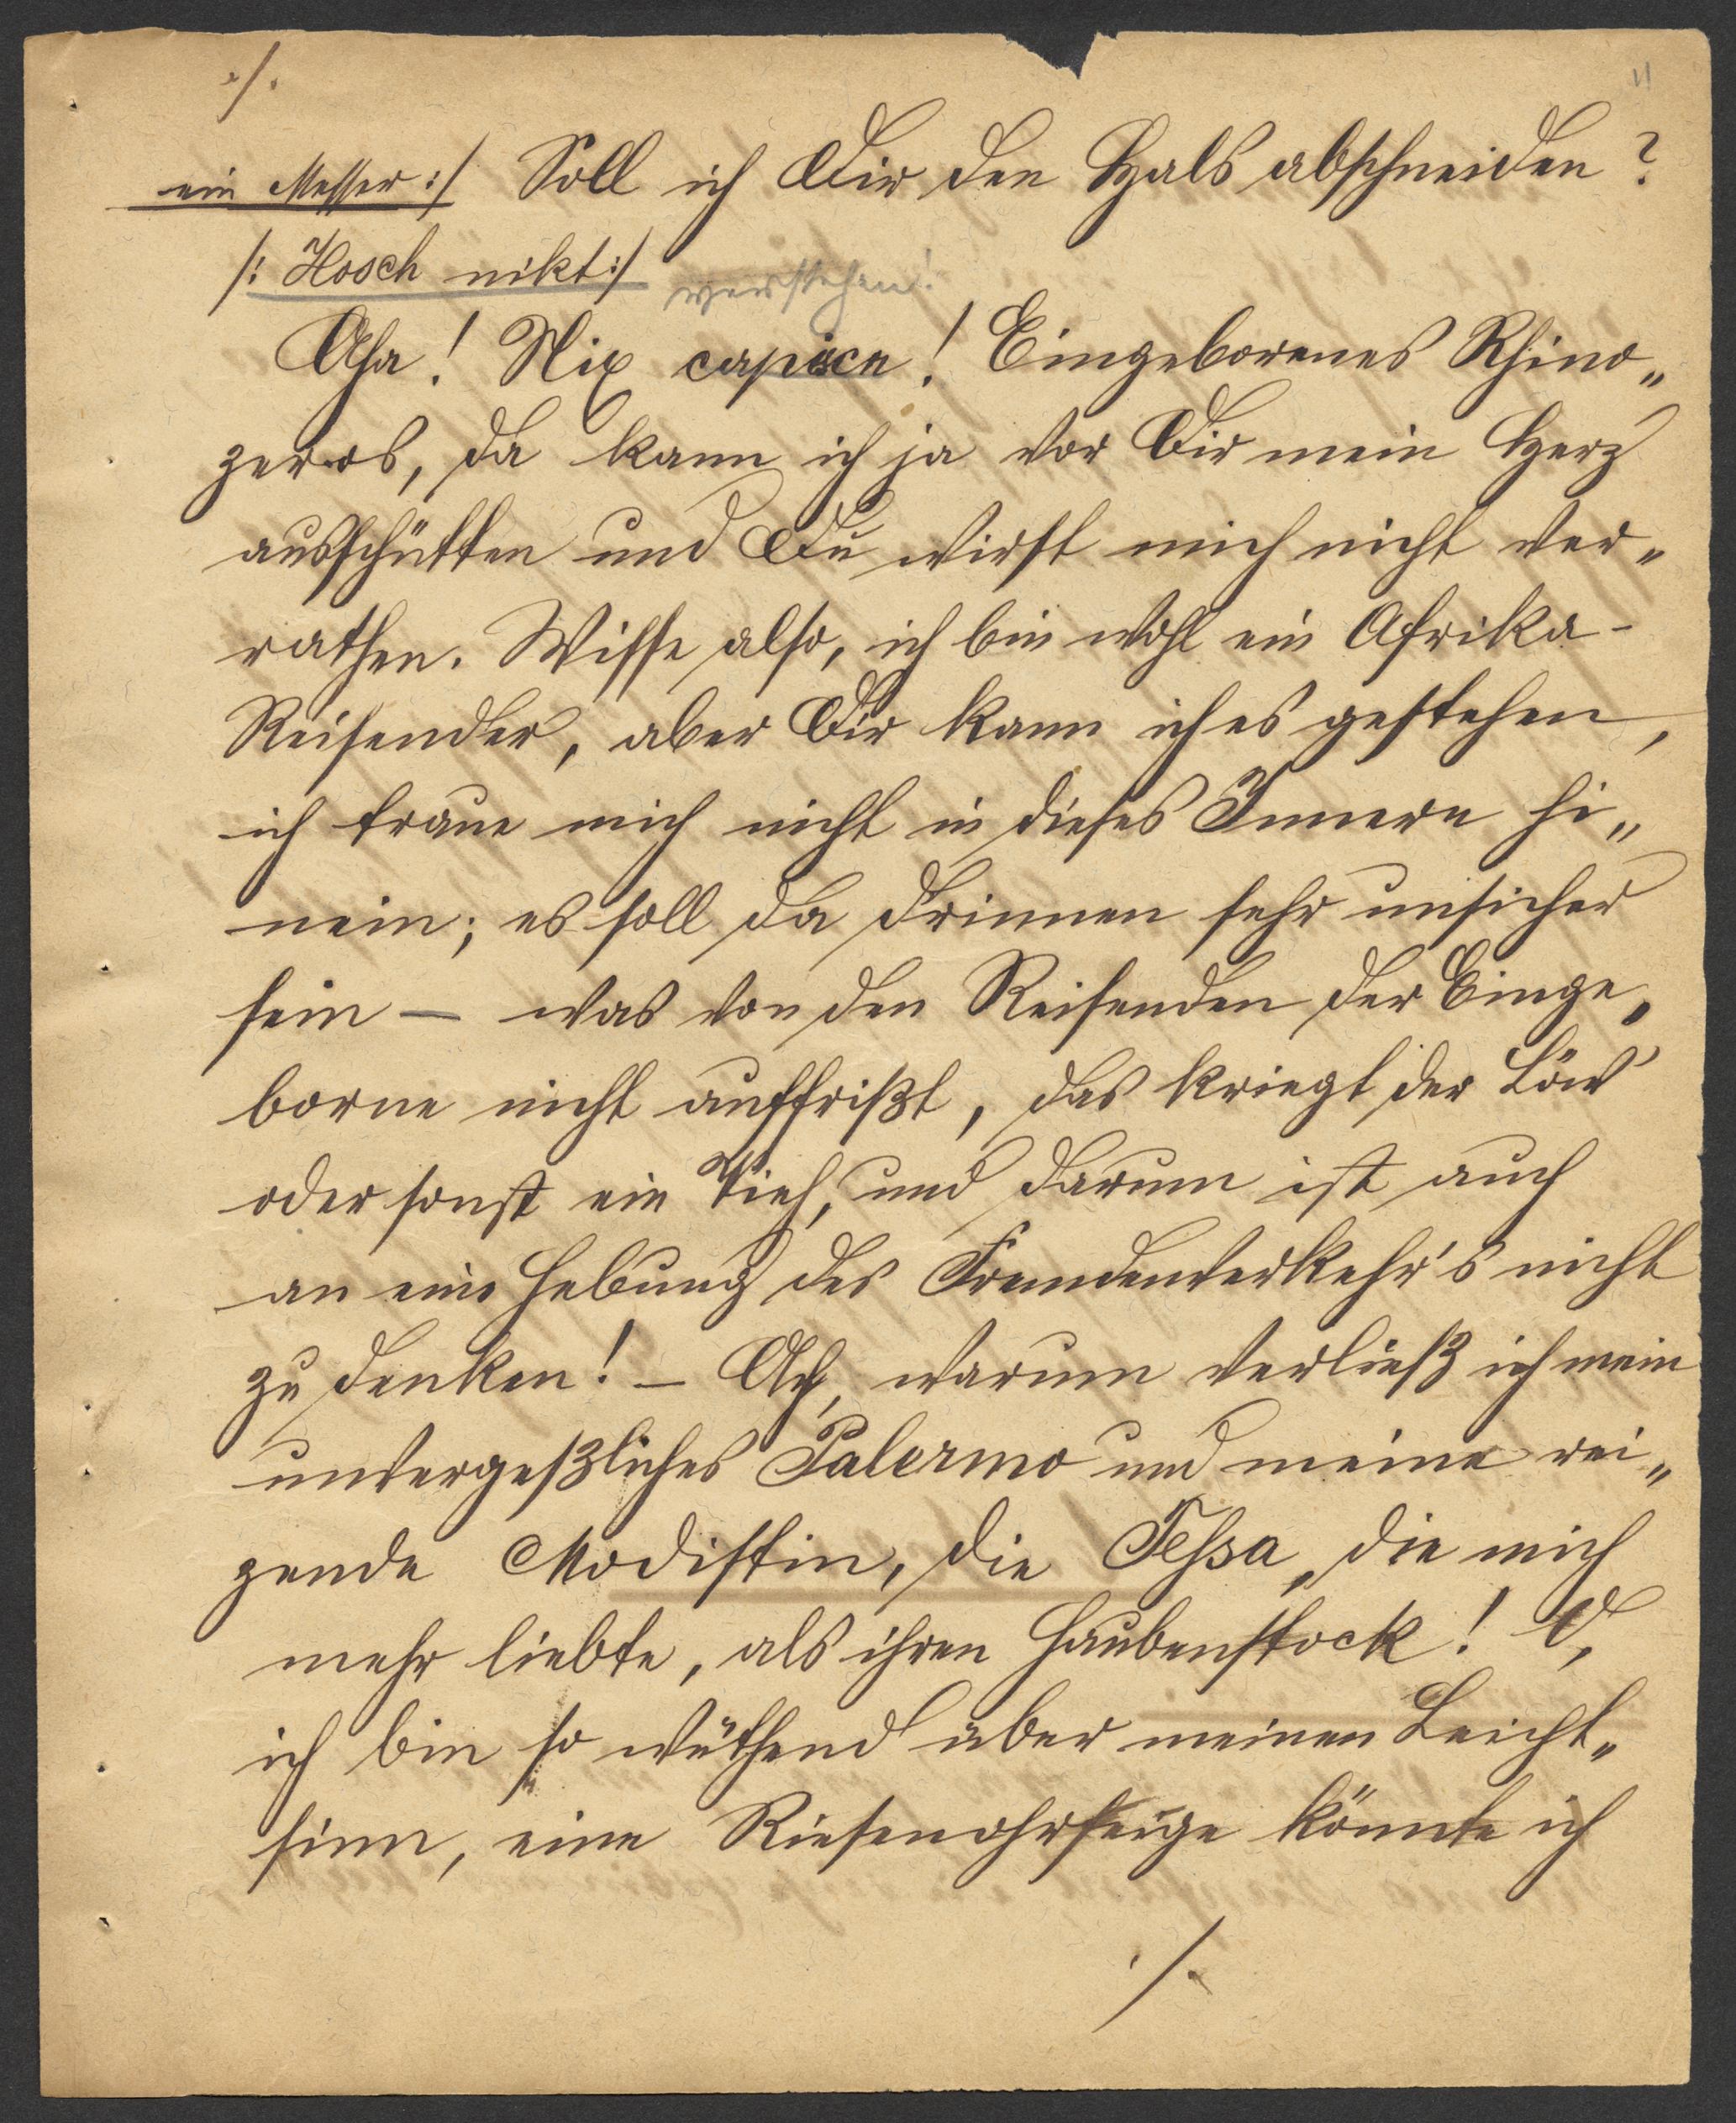 ./.
11
ein Messer :/ Soll ich Dir den Hals abschneiden?
/: Hosch nikt :/ verstehen!
Aha! Nix capisce! Eingeborenes Rhino„
zeros, da kann ich ja vor Dir mein Herz
ausschütten und Du wirst mich nicht ver„
rathen. Wisse also, ich bin wohl ein Afrika-
Reisender, aber Dir kann ich es gestehen,
ich traue mich nicht in dieses Innere hi„
nein; es soll da drinnen sehr unsicher
sein — was von den Reisenden der Einge„
borne nicht auffrißt, das kriegt der Löw'
oder sonst ein Vieh, und darum ist auch
an eine Hebung des Fremdenverkehr's nicht
zu denken! — Ach, warum verließ ich mein
unvergeßliches Palermo und meine rei„
zende Modistin, die Tessa, die mich
mehr liebte, als ihren Haubenstock! O,
ich bin so wüthend über meinen Leicht„
sinn, eine Riesenohrfeige könnte ich
./.